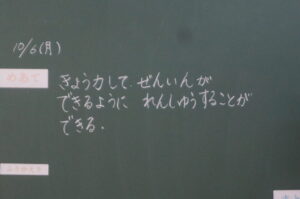 10/6(月)
めあて
きょう力して、ぜんいんが
できるように れんしゅうすることが
できる。
ふりかえり